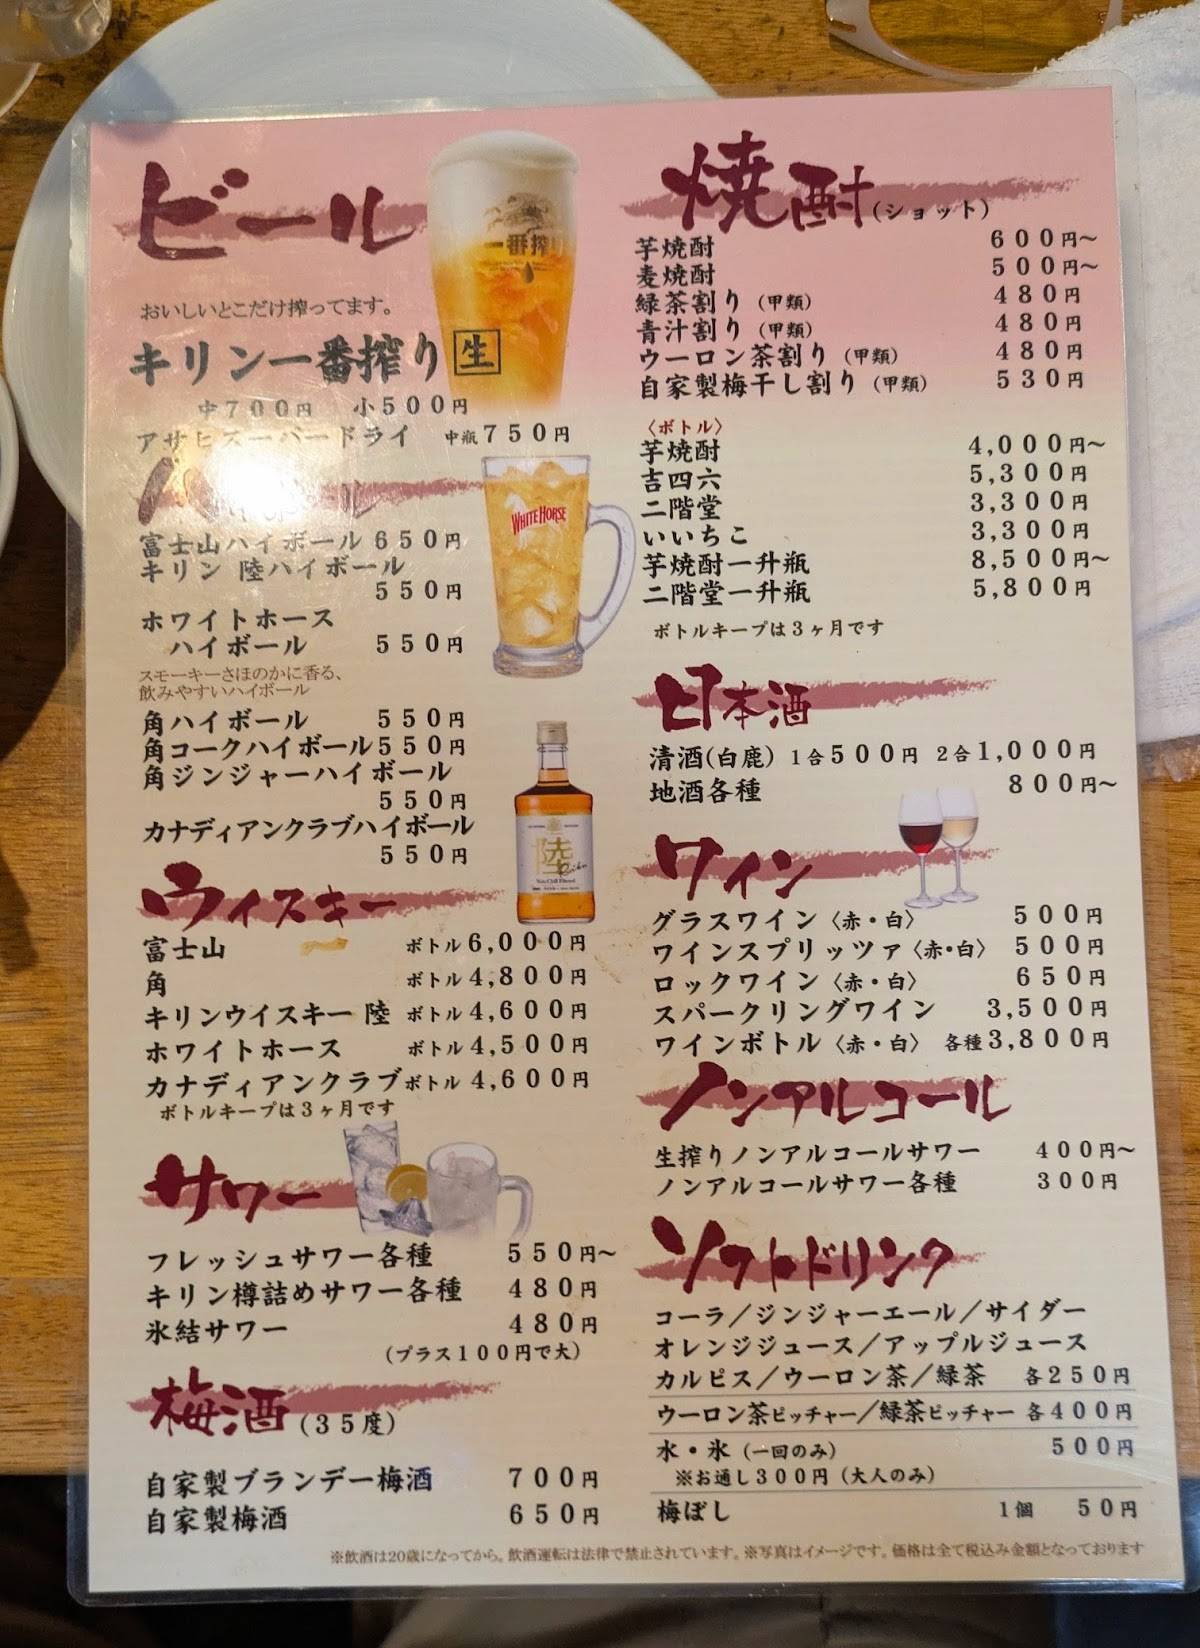 ビール
一番搾り
おいしいとこだけ搾ってます。
キリン一番搾り 生
中700円 小500円
アサヒスーパードライ 中瓶750円
ハイボール
WHITE HORSE
富士山ハイボール 650円
キリン 陸ハイボール
550円
ホワイトホース
ハイボール 550円
スモーキーさほのかに香る、
飲みやすいハイボール
角ハイボール 550円
角コークハイボール 550円
角ジンジャーハイボール
550円
カナディアンクラブハイボール
550円
陸
ウィスキー
富士山 ボトル6,000円
角 ボトル4,800円
キリンウイスキー 陸 ボトル4,600円
ホワイトホース ボトル4,500円
カナディアンクラブ ボトル4,600円
ボトルキープは3ヶ月です
サワー
フレッシュサワー各種 550円～
キリン樽詰めサワー各種 480円
氷結サワー 480円
(プラス100円で大)
梅酒 (35度)
自家製ブランデー梅酒 700円
自家製梅酒 650円
焼酎 (ショット)
芋焼酎 600円～
麦焼酎 500円～
緑茶割り (甲類) 480円
青汁割り (甲類) 480円
ウーロン茶割り (甲類) 480円
自家製梅干し割り (甲類) 530円
〈ボトル〉
芋焼酎 4,000円～
吉四六 5,300円
二階堂 3,300円
いいちこ 3,300円
芋焼酎一升瓶 8,500円～
二階堂一升瓶 5,800円
ボトルキープは3ヶ月です
日本酒
清酒(白鹿) 1合500円 2合1,000円
地酒各種 800円～
ワイン
グラスワイン〈赤・白〉 500円
ワインスプリッツァ〈赤・白〉 500円
ロックワイン〈赤・白〉 650円
スパークリングワイン 3,500円
ワインボトル〈赤・白〉 各種3,800円
ノンアルコール
生搾りノンアルコールサワー 400円～
ノンアルコールサワー各種 300円
ソフトドリンク
コーラ／ジンジャーエール／サイダー
オレンジジュース／アップルジュース
カルピス／ウーロン茶／緑茶 各250円
ウーロン茶ピッチャー／緑茶ピッチャー 各400円
水・氷 (一回のみ) 500円
※お通し300円 (大人のみ)
梅ぼし 1個 50円
※飲酒は20歳になってから。飲酒運転は法律で禁止されています。※写真はイメージです。価格は全て税込み金額となっております